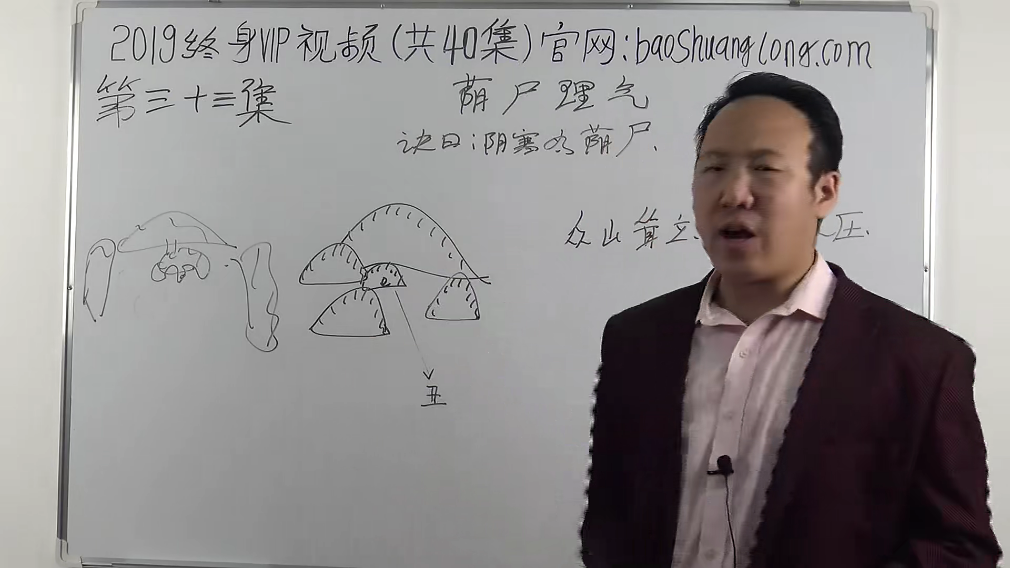 2019终身VIP视频(共40集)官网:baoshuanglong.com
第三十三集
荫尸理气
诀曰:阴寒为荫尸.
众山耸立.
压.
丑